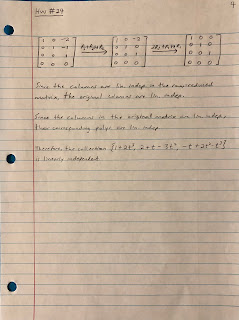 4
HW #24
1 0 -2 1 0 -2 1 0 0
0 1 -1 0 1 0 0 1 0
0 0 1 0 0 1 0 0 1
0 0 0 0 0 0 0 0 0
Since the columns are lin indep in the row-reduced
matrix, the original columns are lin. indep.
Since the columns in the original matrix are lin indep,
their corresponding polys are lin indep
Therefore the collection {1+2t³, 2+t-3t², -t+2t²-t³}
is linearly independent